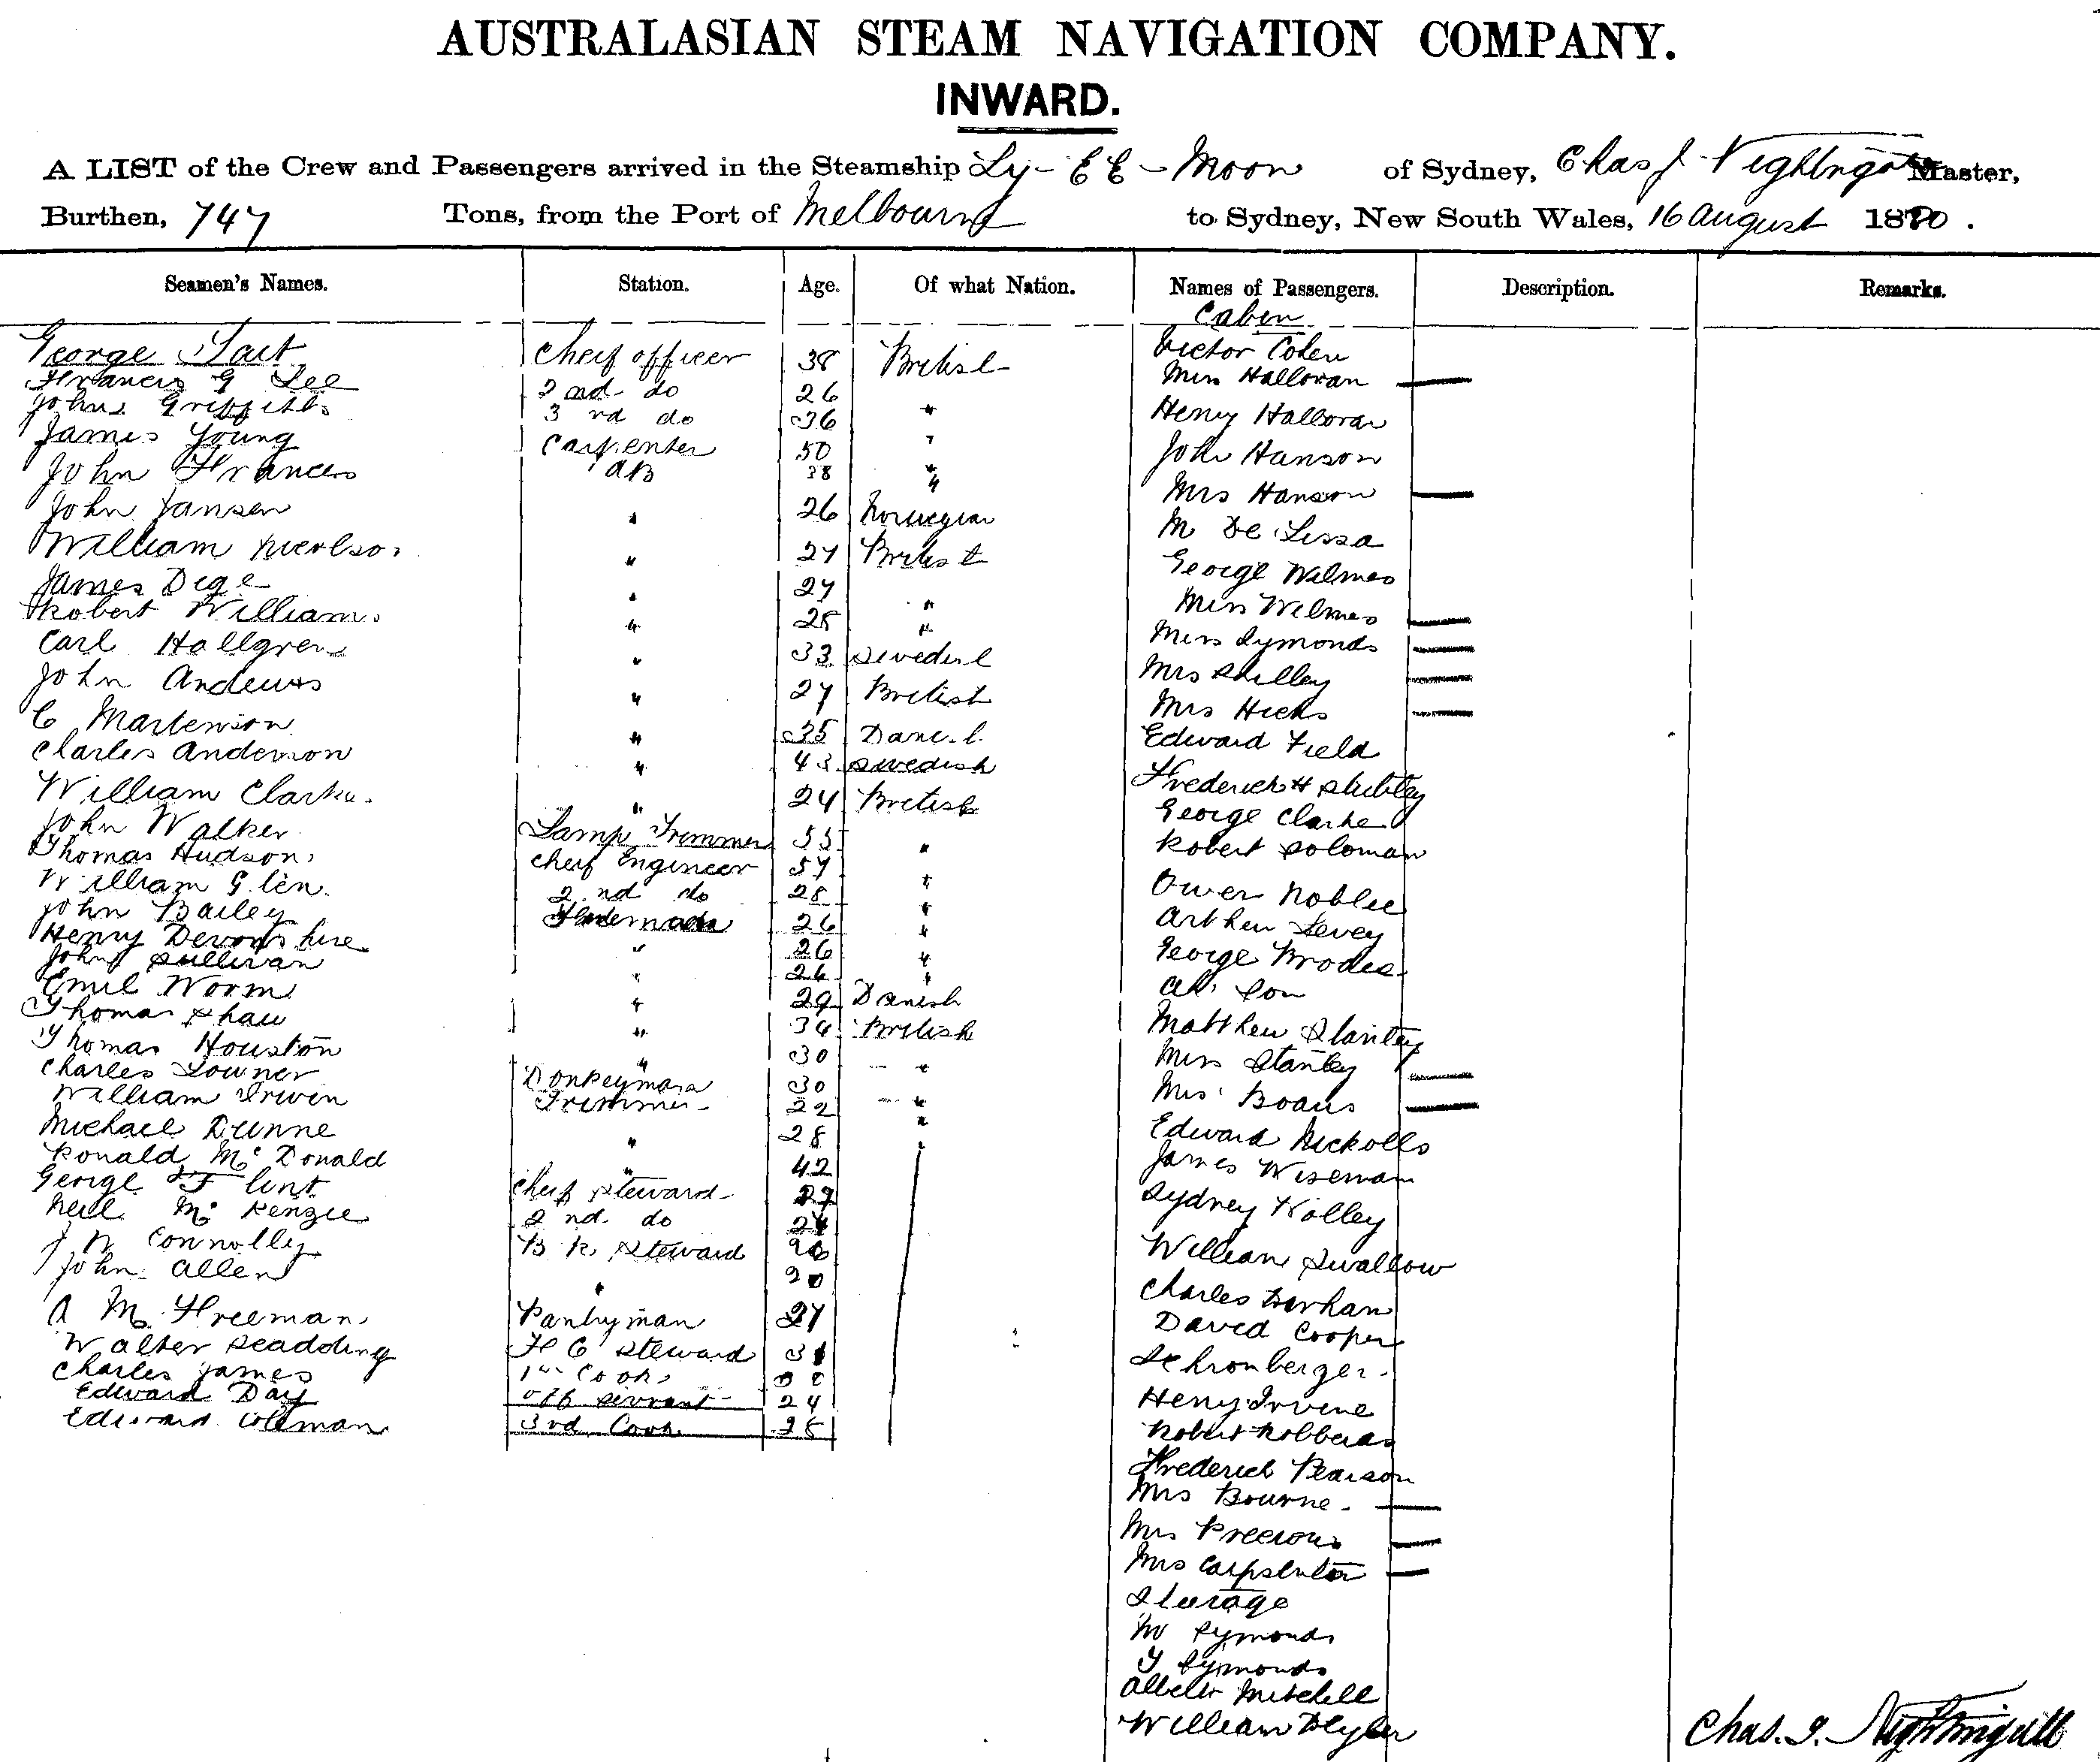 AUSTRALASIAN STEAM NAVIGATION COMPANY.
INWARD.
A LIST of the Crew and Passengers arrived in the Steamship Ly-EE-Moon of Sydney, Chas J Nightingale Master,
Burthen, 747 Tons, from the Port of Melbourne to Sydney, New South Wales, 16 August 1880.
Seamen's Names. Station. Age. Of what Nation. Names of Passengers. Description. Remarks.
Cabin
George Tait Chief officer 38 British Victor Cohen
Francis G Lee 2nd do 26 Miss Halloran
John Griffiths 3rd do 36 " Henry Halloran
James Young Carpenter 50 " John Hanson
John Frances AB 38 " Mrs Hanson
John Jansen " 26 Norwegian M De Lissa
William " 27 British George Wilmes
James Dege " 27 " Miss Wilmes
Robert Williams " 28 " Miss Symonds
Carl Hallgren " 33 Swedish Mrs Shelley
John Andews " 27 British Mrs Hicks
C Martenson " 35 Danish Edward Field
Charles Anderson " 43 Swedish Frederick H
William Clarke " 24 British George Clarke
John Walker Lamp Trimmer 55 " Robert Soloman
Thomas Hudson Chief Engineer 57 " Owen
William Glen 2nd do 28 " Arthur Levey
John Bailey 26 " George
Henry Devonshire " 26 " Ah
John Sullivan " 26 " Matthew
Emil Worm " 29 Danish Miss Stanley
Thomas Shaw " 34 British Mrs
Thomas Houston " 30 " Edward Nickolls
Charles Donkeyman 30 " James Wiseman
William Irwin Trimmer 22 " Sydney
Michael Dunne " 28 William Swallow
Ronald Mc Donald " 42 Charles
George F Lint Chief Steward 29 David Cooper
Neil Mc Kenzie 2nd do
J W Connolly B R Steward Henry Irvine
John Allen " 20 Robert
A M Freeman Pantryman 27 Frederick Pearson
Walter Scadding F C Steward 31 Mrs Bourne
Charles James 1st Cook Mrs Precious
Edward Day off servant 24 Mrs Carpenter
Edward Coleman 3rd Cook 28 Steerage
M Symonds
Y Symonds
Albert Mitchell
William
Chas. J. Nightingale